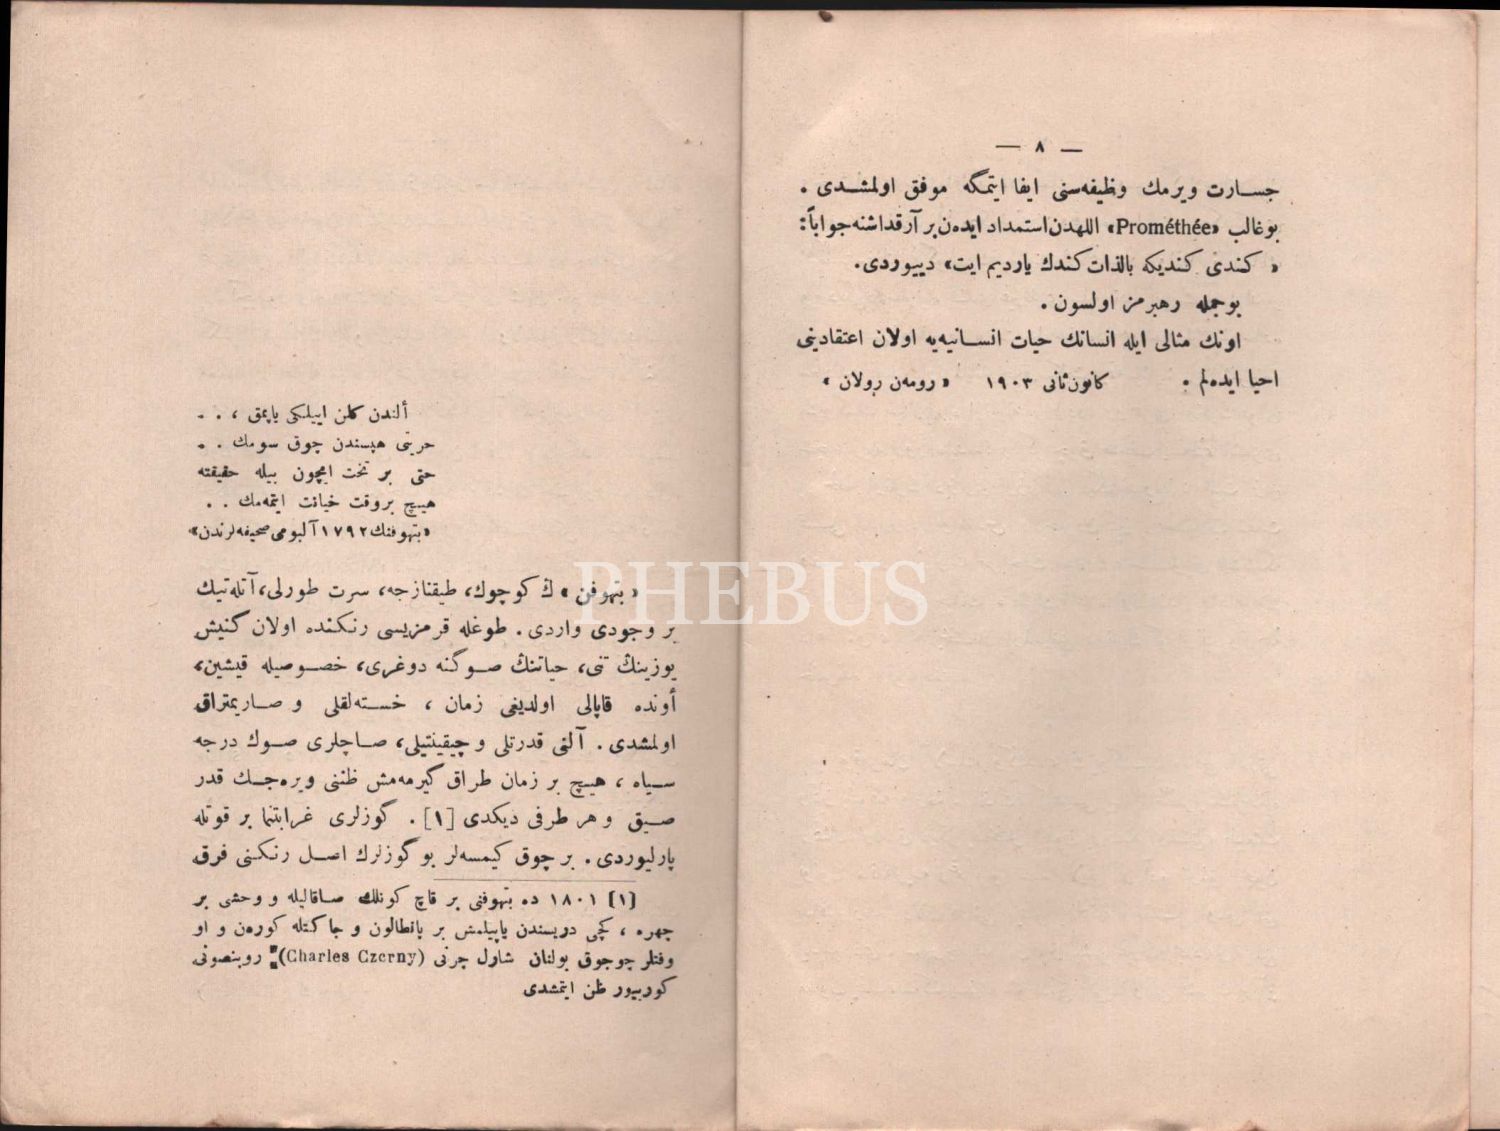 — ٨ —
جسارت ويرمك وظيفه‌سنى ايفا ايتمگه موفق اولمشدى .
بوغالب «Prométhée» اللهدن استمداد ايده‌ن بر آرقداشنه جواباً :
« كندى كنديكه بالذات كندك يارديم ايت » دييوردى .
بوجمله رهبرمز اولسون .
اونك مثالى ايله انسانك حيات انسانيه‌يه اولان اعتقادينى
احيا ايده‌لم . كانون‌ثانى ١٩٠٣ « رومه‌ن رولان »
ألندن كلن اييلكى ياپمق ، . .
حريتى هپسندن چوق سومك . .
حتى بر تخت ايچون بيله حقيقته
هيچ بروقت خيانت ايتمه‌مك . .
«بتهوفنك ١٧٩٢ آلبومى صحيفه‌لرندن»
« بتهوفن » ڭ كوچوك، طيقنازجه، سرت طورلى، آتله‌تيك
بر وجودى واردى . طوغله قرمزيسى رنكنده اولان گنيش
يوزينڭ تنى، حياتنڭ صوڭنه دوغرى، خصوصيله قيشين،
أونده قاپالى اولديغى زمان ، خسته‌لقلى و صاريمتراق
اولمشدى . آلنى قدرتلى و چيقينتيلى، صاچلرى صوك درجه
سياه ، هيچ بر زمان طراق گيرمه‌مش ظننى ويره‌جك قدر
صيق و هر طرفى ديكدى [١] . گوزلرى غرابتنما بر قوتله
پارليوردى . بر چوق كيمسه‌لر بو گوزلرك اصل رنكنى فرق
[١] ١٨٠١ ده بتهوفنى بر قاچ كونلك صاقاليله و وحشى بر
چهره ، كچى دريسندن ياپيلمش بر پانطالون و جاكتله كوره‌ن و او
وقتلر چوجوق بولنان شارل چرنى (Charles Czerny): روبنصونى
كورييور ظن ايتمشدى
PHEBUS